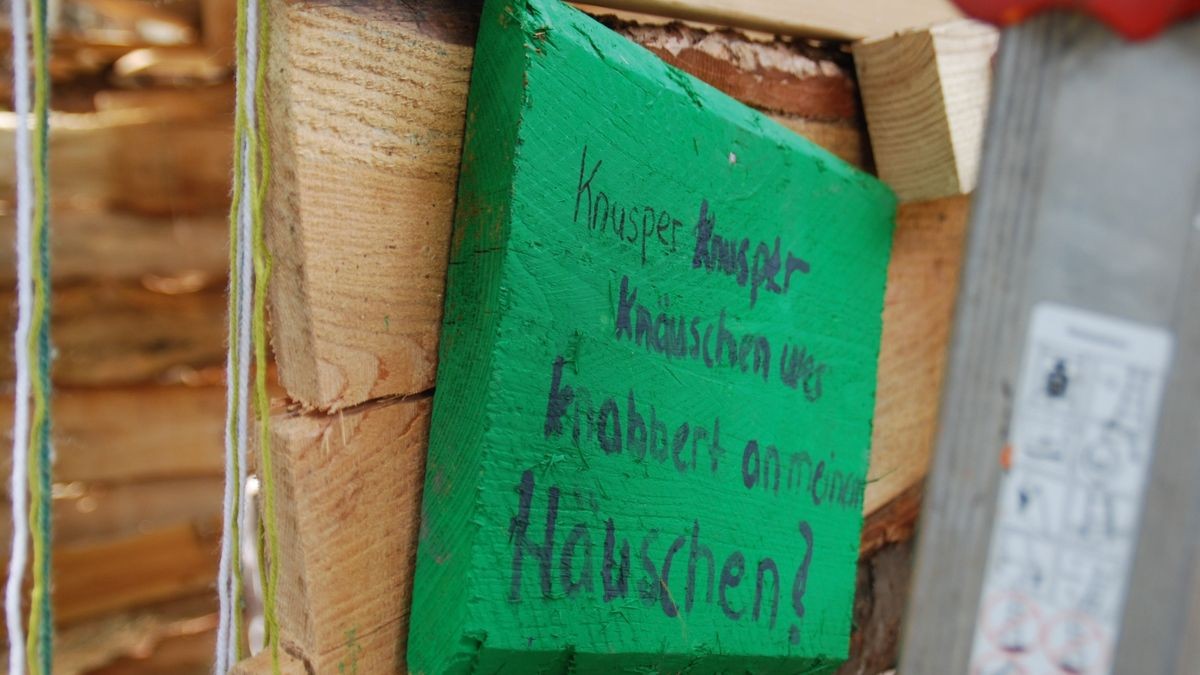 Knusper Knusper
Knäuschen wer
knabbert an meinem
Häuschen?